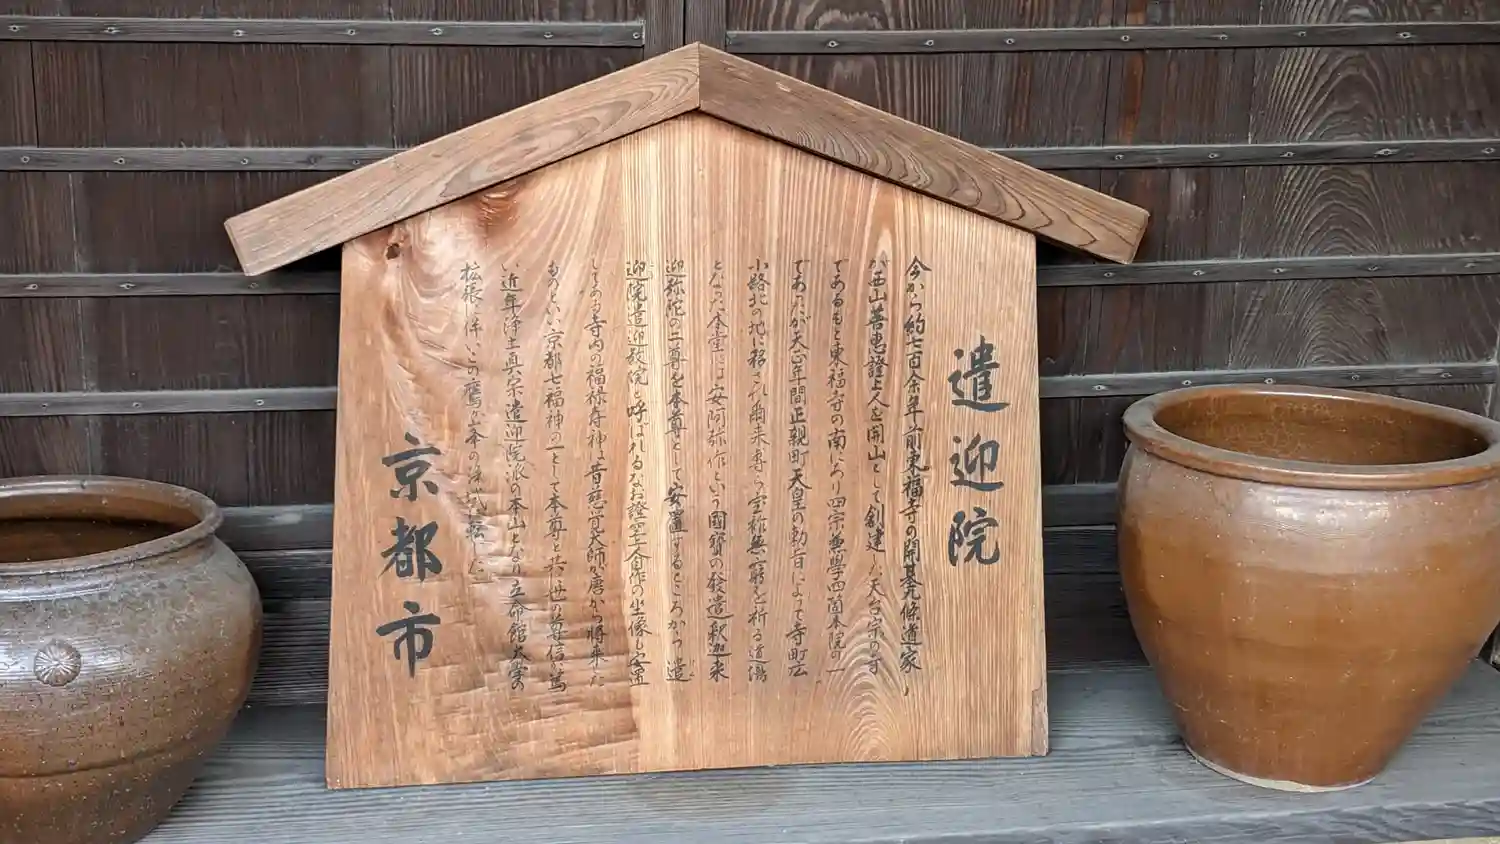 遣迎院
今から約七百余年前東福寺の開基九條道家
が西山善恵證上人を開山として創建した天台宗の寺
であるもと東福寺の南にあり四宗兼學四箇本院の一
であったが天正年間正親町天皇の勅旨によって寺町広
小路北の地に移され爾来専ら宝祚無窮を祈る道場
となった本堂には安阿弥作という國寶の發遣釈迦来
迎弥陀の二尊を本尊として安置するところから遣
迎院遣迎教院と呼ばれるなお證空上人自作の坐像も安置
してある寺内の福禄寿神は昔慈覚大師が唐から将来した
ものといい京都七福神の一として本尊と共に世の尊信が篤
い近年浄土真宗遣迎院派の本山となり立命館大学の
拡張に伴いこの鷹ヶ峯の浄域に移転した
京都市